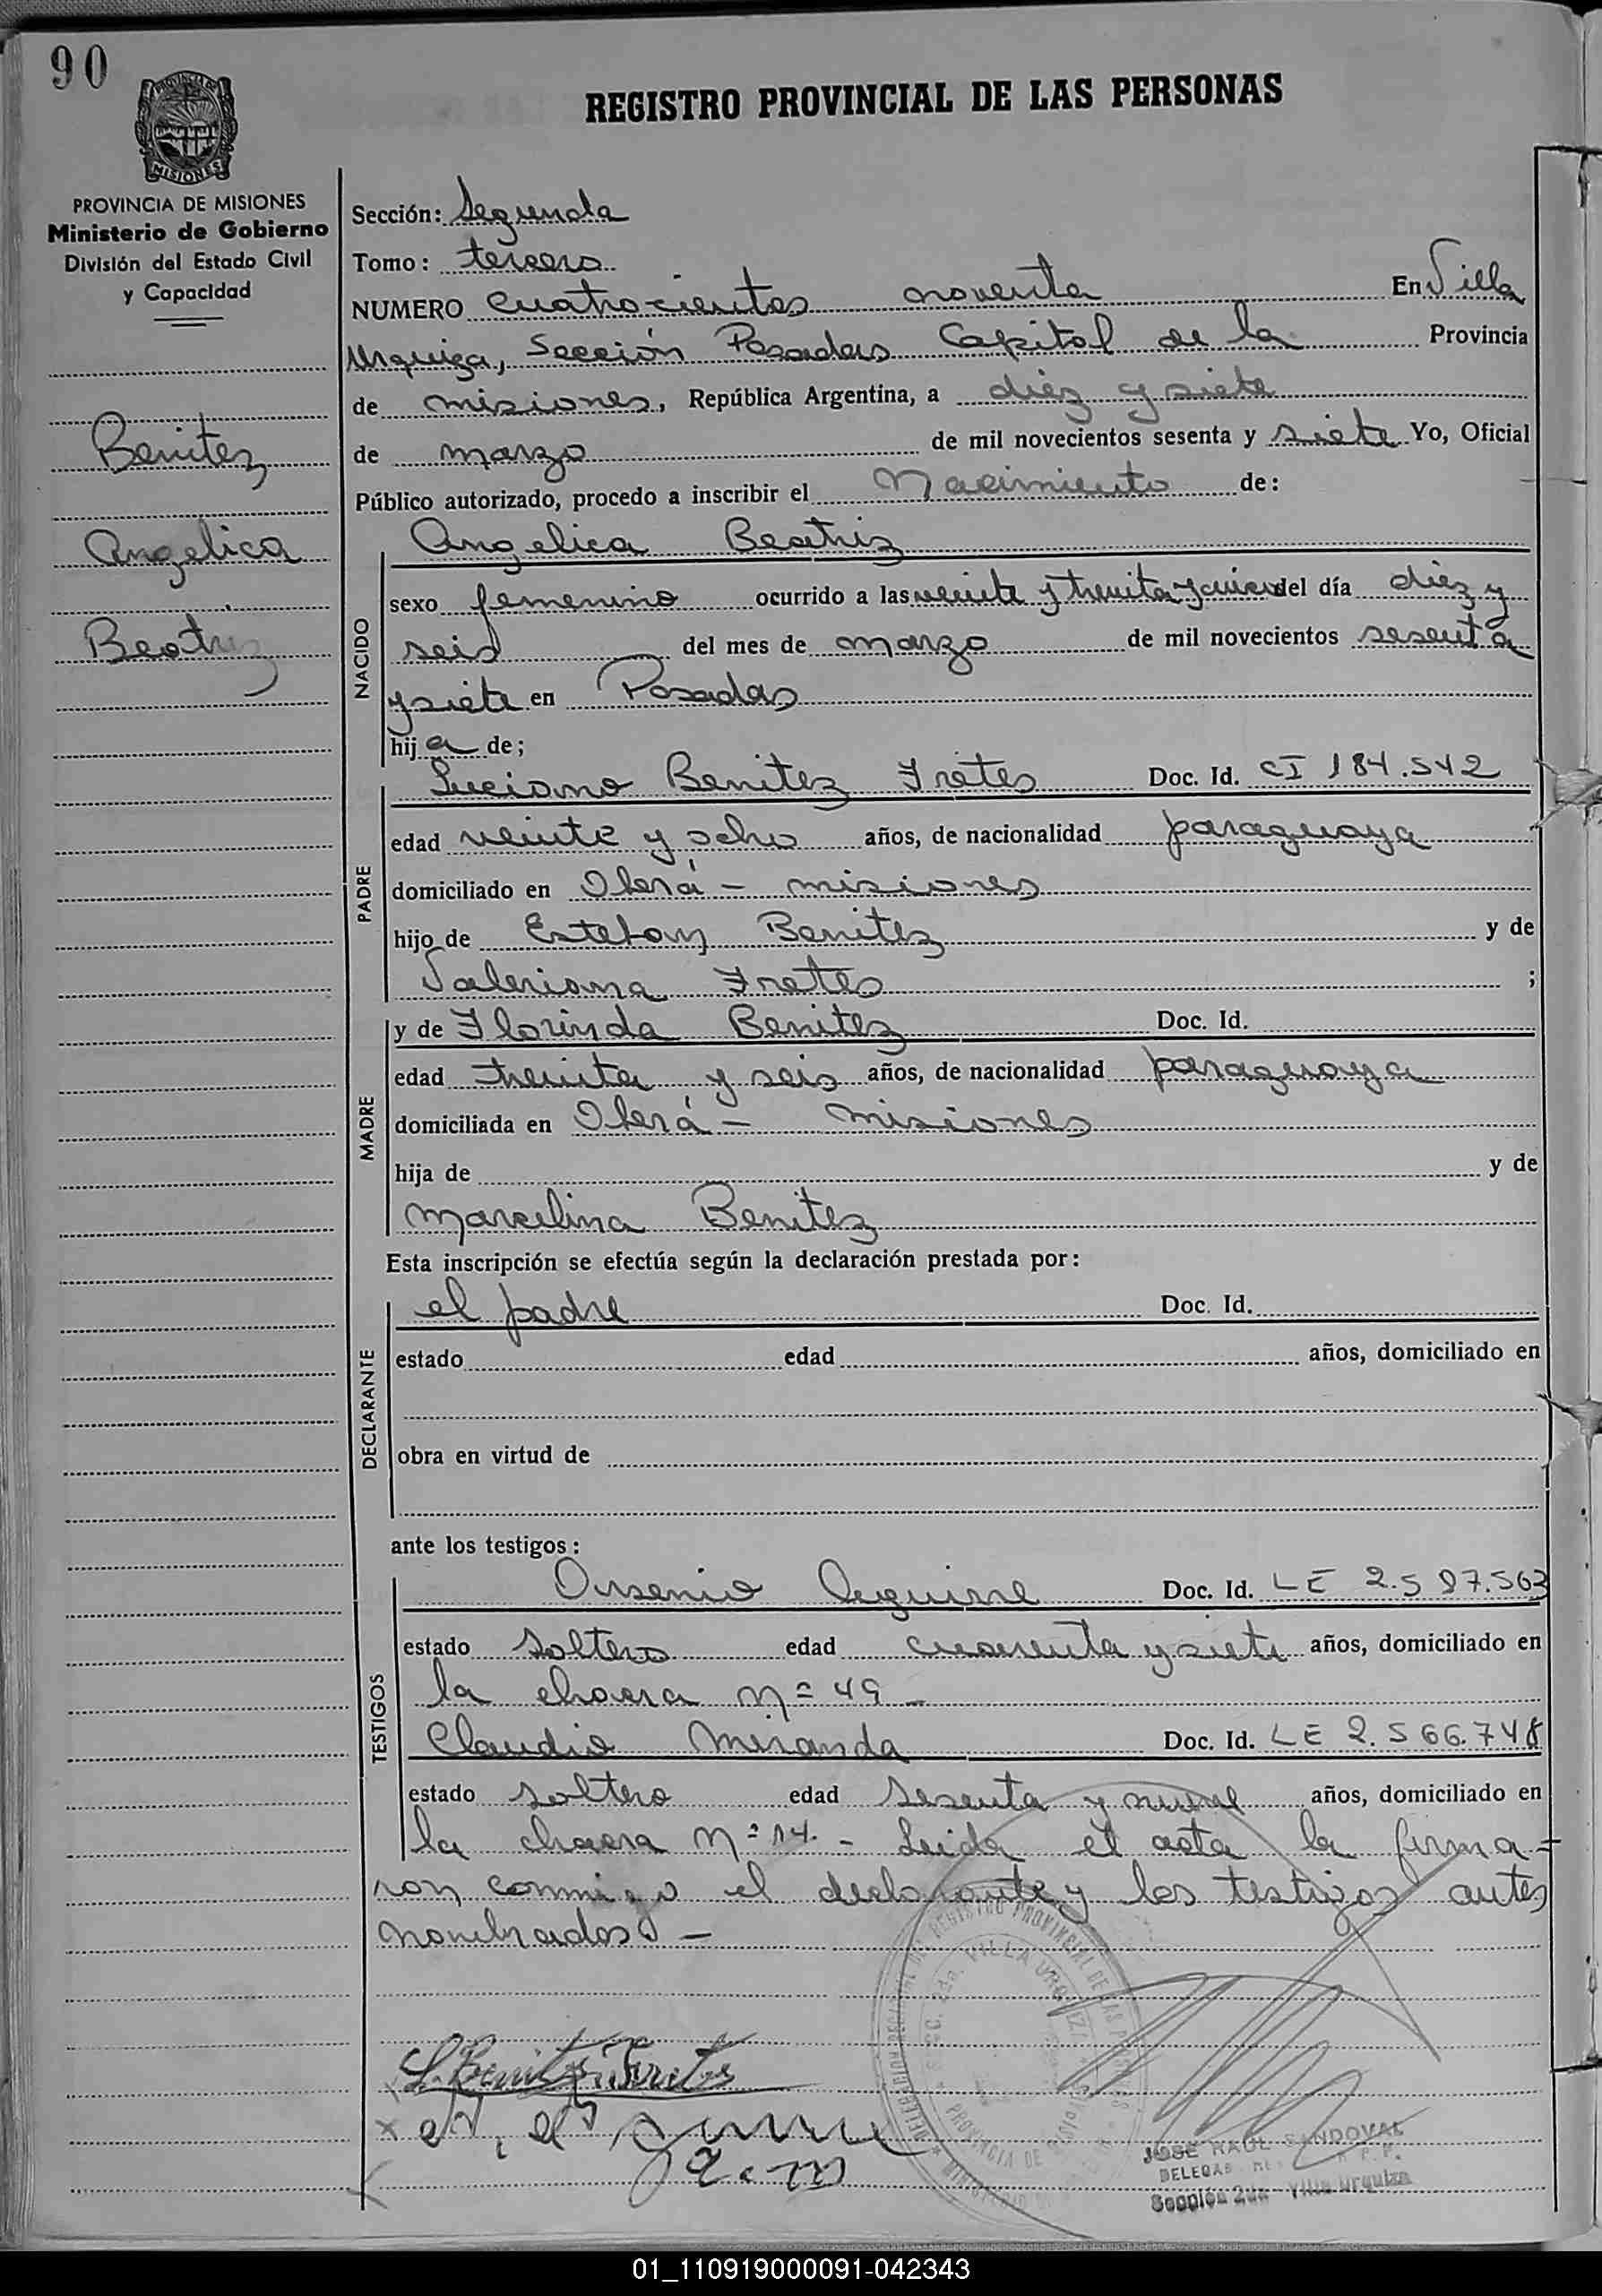 90
REGISTRO PROVINCIAL DE LAS PERSONAS
PROVINCIA DE
MISIONES
PROVINCIA DE MISIONES
Ministerio de Gobierno
División del Estado Civil
y Capacidad
Benitez
Angelica
Beatriz
Sección: Segunda
Tomo: tercero
NUMERO cuatrocientos noventa En Villa
Urquiza, Sección Posadas Capital de la Provincia
de misiones, República Argentina, a diez y siete
de marzo de mil novecientos sesenta y siete Yo, Oficial
Público autorizado, procedo a inscribir el Nacimiento de:
NACIDO
Angelica Beatriz
sexo femenino ocurrido a las veinte y treinta y cinco del día diez y
seis del mes de marzo de mil novecientos sesenta
y siete en Posadas
hija de;
PADRE
Luciano Benitez Fretes Doc. Id. CI 184.542
edad veinte y ocho años, de nacionalidad paraguaya
domiciliado en Oberá - misiones
hijo de Esteban Benitez y de
Valeriana Fretes ;
MADRE
y de Florinda Benitez Doc. Id.
edad treinta y seis años, de nacionalidad paraguaya
domiciliada en Oberá - misiones
hija de y de
Marcelina Benitez
Esta inscripción se efectúa según la declaración prestada por:
DECLARANTE
el padre Doc. Id.
estado edad años, domiciliado en
obra en virtud de
ante los testigos:
TESTIGOS
Arsenio Aguirre Doc. Id. LE 2.597.563
estado soltero edad cuarenta y siete años, domiciliado en
la chacra Nº 49 -
Claudio Miranda Doc. Id. LE 2.566.748
estado soltero edad sesenta y nueve años, domiciliado en
la chacra Nº 14. - Leida el acta la firma-
ron conmigo el declarante y los testigos antes
nombrados -
L. Benitez Fretes
REGISTRO PROVINCIAL DE LAS PERSONAS
SEC. 2da. VILLA URQUIZA
PROVINCIA DE
JOSE RAUL SANDOVAL
Sección 2da Villa Urquiza
01_110919000091-042343